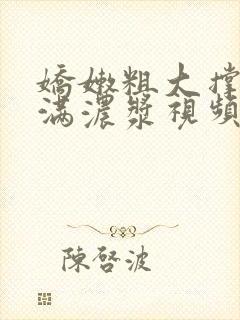 嬌嫩粗大撐
滿濃漿視頻
陳啓波